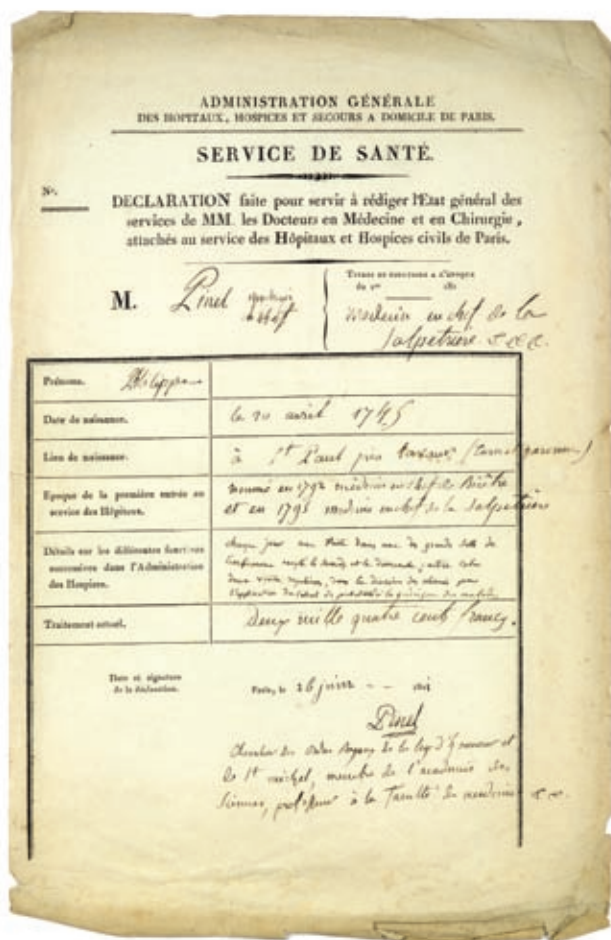 ADMINISTRATION GÉNÉRALE
DES HOPITAUX, HOSPICES ET SECOURS A DOMICILE DE PARIS.
SERVICE DE SANTÉ.
N°.
DECLARATION faite pour servir à rédiger l'Etat général des
services de MM. les Docteurs en Médecine et en Chirurgie,
attachés au service des Hôpitaux et Hospices civils de Paris.
M. Pinel
TITRES ET FONCTIONS A L'ÉPOQUE
du 1er 181
médecin en chef de la
Salpetrière
Prénoms. Philippe
Date de naissance. le 20 avril 1745
Lieu de naissance. à St Paul près
Epoque de la première entrée au
service des Hôpitaux.
nommé en 1792 médecin en chef de Bicêtre
et en 1795 médecin en chef de la Salpetrière
Détails sur les différentes fonctions
successives dans l'Administration
des Hospices.
chaque jour une visite dans une des grandes salles de
Traitement actuel. Deux mille quatre cents francs.
Date et signature
de la déclaration.
Paris, le 26
Pinel
Chevalier des ordres royaux de la legion d'honneur et
de St michel, membre de l'academie des
sciences, professeur à la Faculté de medecine